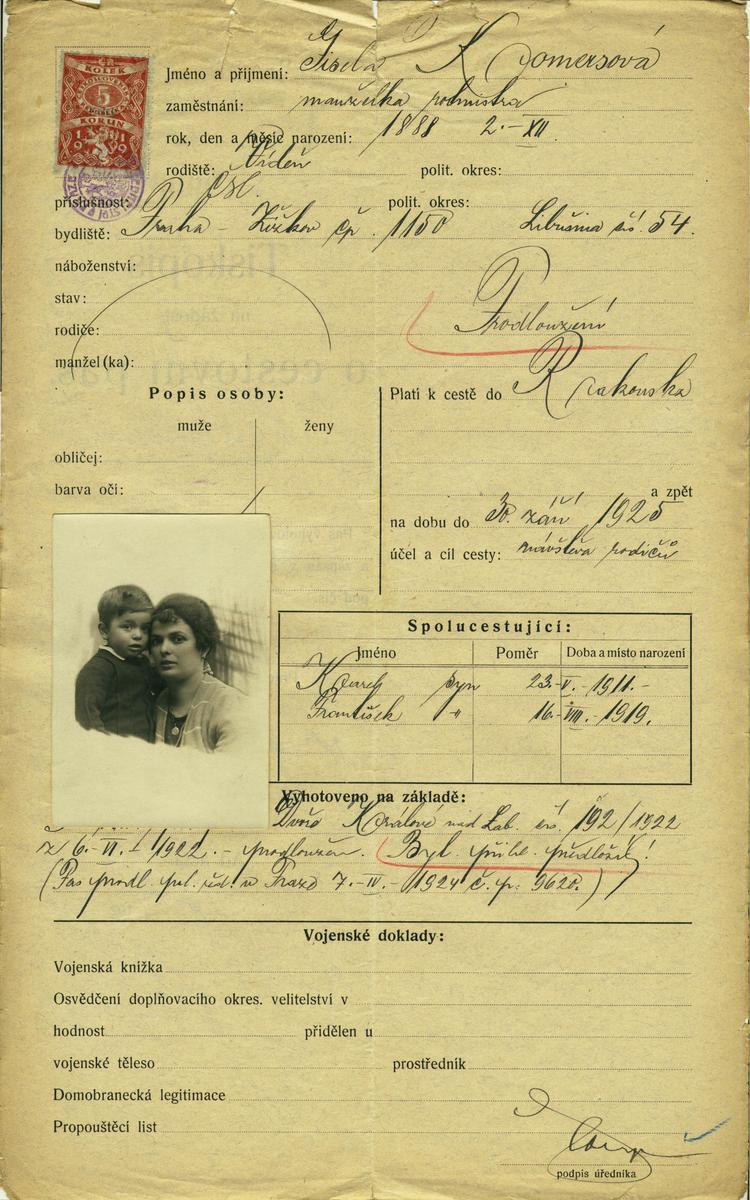 KOLEK
5
KORUN
1919
Jméno a přijmení: Gisela Kromersová
zaměstnání: manželka rotmistra
rok, den a měsíc narození: 1888 2.-XII
rodiště: Vídeň polit. okres:
příslušnost: ČSL. polit. okres:
bydliště: Praha - Žižkov čp. 1150 Libušina čís. 54.
náboženství:
stav:
Prodloužení
rodiče:
manžel(ka):
Popis osoby:
Platí k cestě do Rakouska
muže ženy
obličej:
barva očí:
a zpět
na dobu do 30. září 1925
účel a cíl cesty: návštěva rodičů
Spolucestující:
Jméno Poměr Doba a místo narození
Karel syn 23.-V.-1911.-
František " 16.-VIII.-1919.
Vyhotoveno na základě:
Dvůr Králové nad Lab. čís. 192/1922
z 6.-VI. 1922.- prodloužen. Byl předlož!
(Pas prodl. pol. řed. v Praze 7.-IV.-1924 č. p. 9620.)
Vojenské doklady:
Vojenská knížka
Osvědčení doplňovacího okres. velitelství v
hodnost přidělen u
vojenské těleso prostředník
Domobranecká legitimace
Propouštěcí list
podpis úředníka